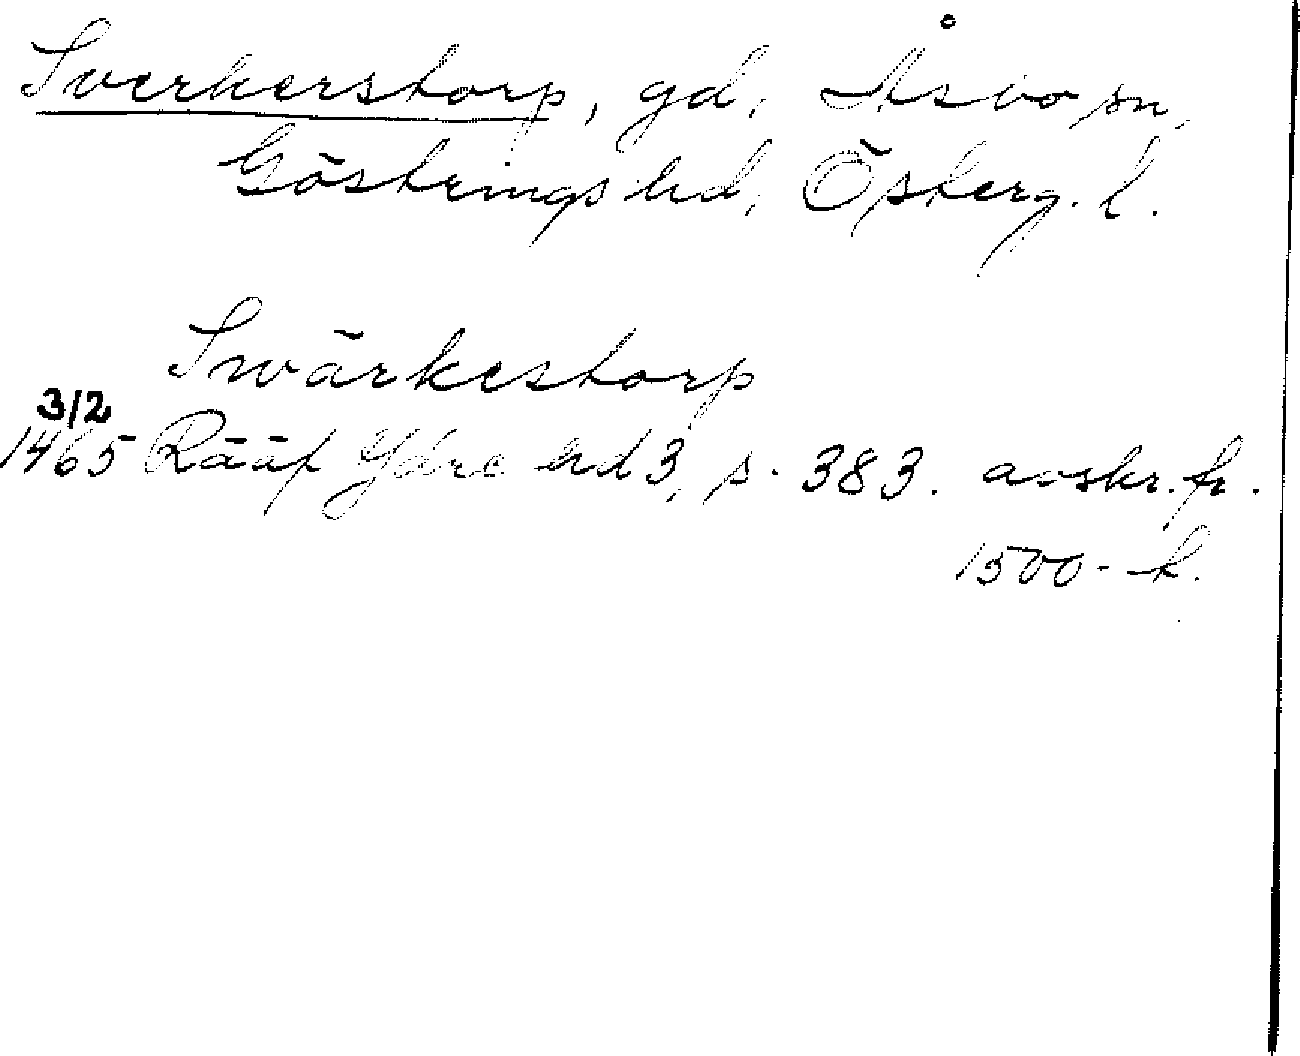 Sverkerstorp, gd, Åsbo sn,
Göstrings hd, Österg. l.
Swärkestorp
3/2
1465 Rääf Ydre hd 3, s. 383. avskr. fr.
1500-t.